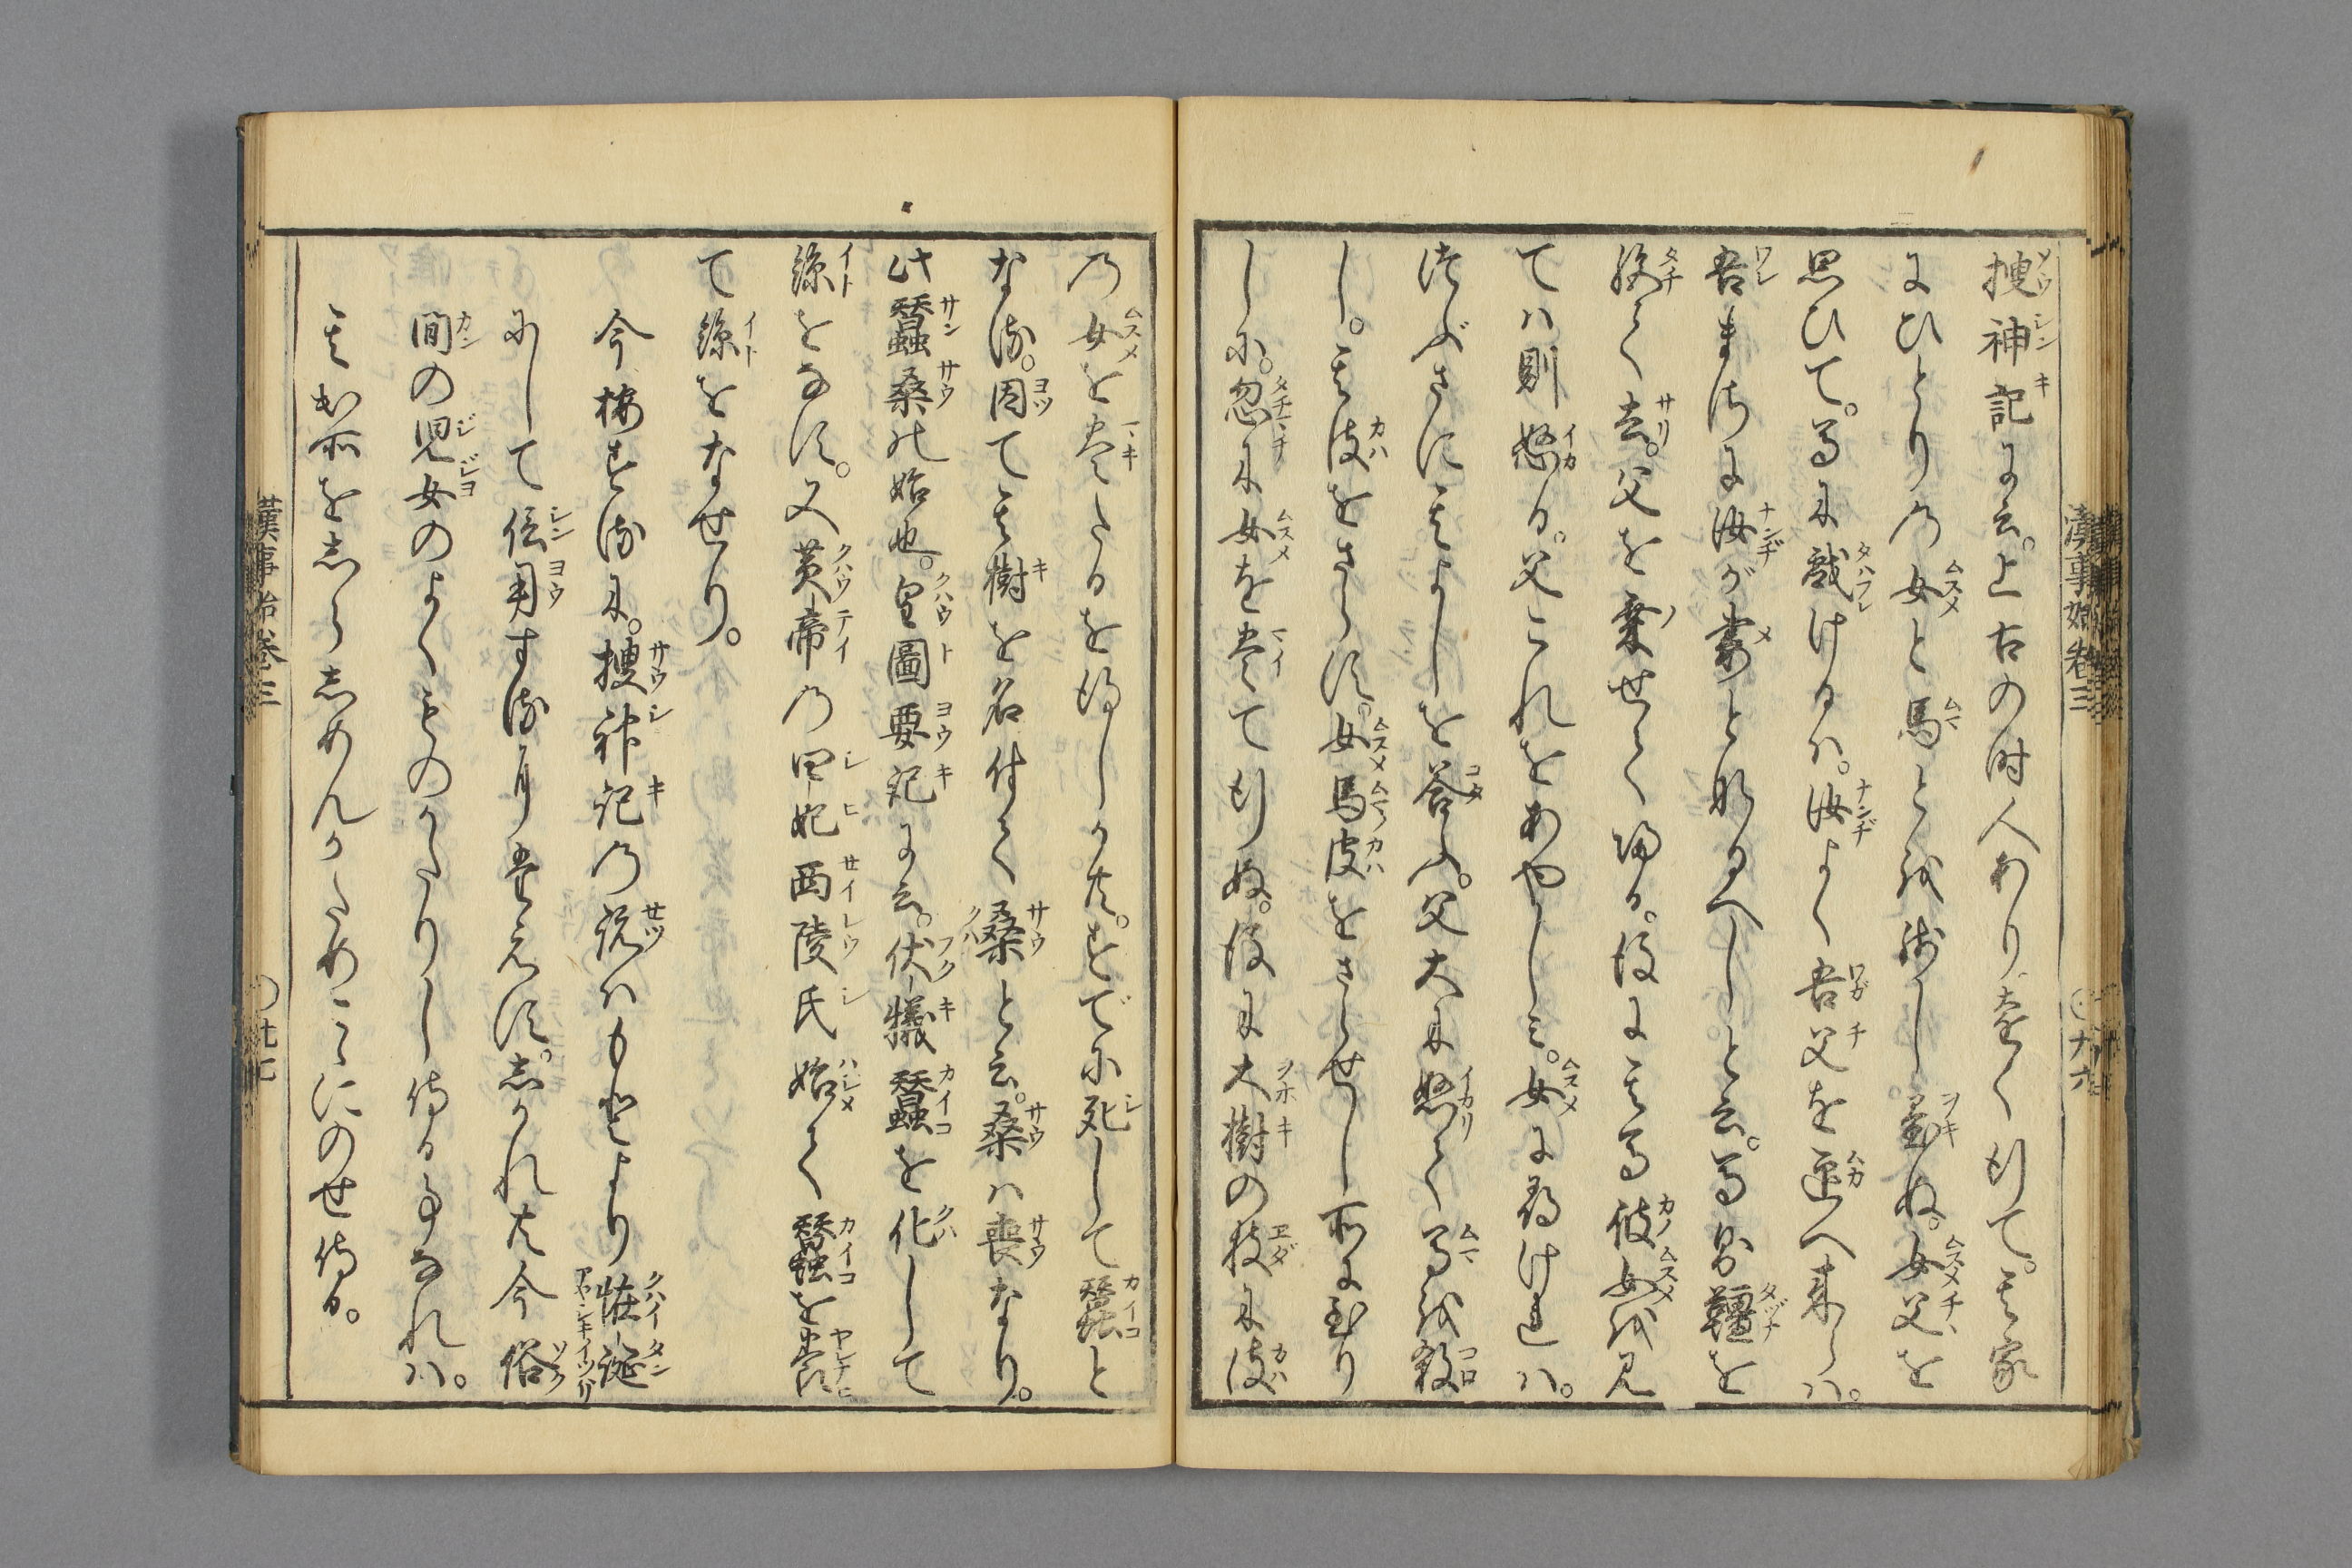 捜神記に云。上古の時人あり。遠く行て。其家
にひとりの女と馬とを残し置ぬ。女父を
思ひて。馬に戯けるハ。汝よく吾父を迎へ来らハ。
吾まさに汝が妻と成るへしと云。馬韁を
絞て去。父を乗せて帰る。後に其馬彼女を見
てハ則怒る。父これをあやしミ。女に尋けれハ。
つぶさに其よしを答ふ。父大に怒て馬を殺
し。其皮をさらす。女馬皮をさらせし所に至り
しに。忽に女を巻て行ぬ。後に大樹の枝に皮
漢事始巻三
〇十六
の女を巻たるを得しかども。すでに死して蚕と
なる。因て其樹を名付て桑と云。桑ハ喪なり。
此蠶桑の始也。皇圖要記に云。伏犧蠶を化して
絲をなす。又黄帝の四妃西陵氏始て蠶を養
て絲をなせり。
今按ずるに。捜神記の説ハもとより怪誕
にして信用する事堪えず。しかれ共今俗
間の児女のよくものかたりし侍る事なれハ。
其出所をしらしめんかためこゝにのせ侍る。
漢事始巻三
〇廿七